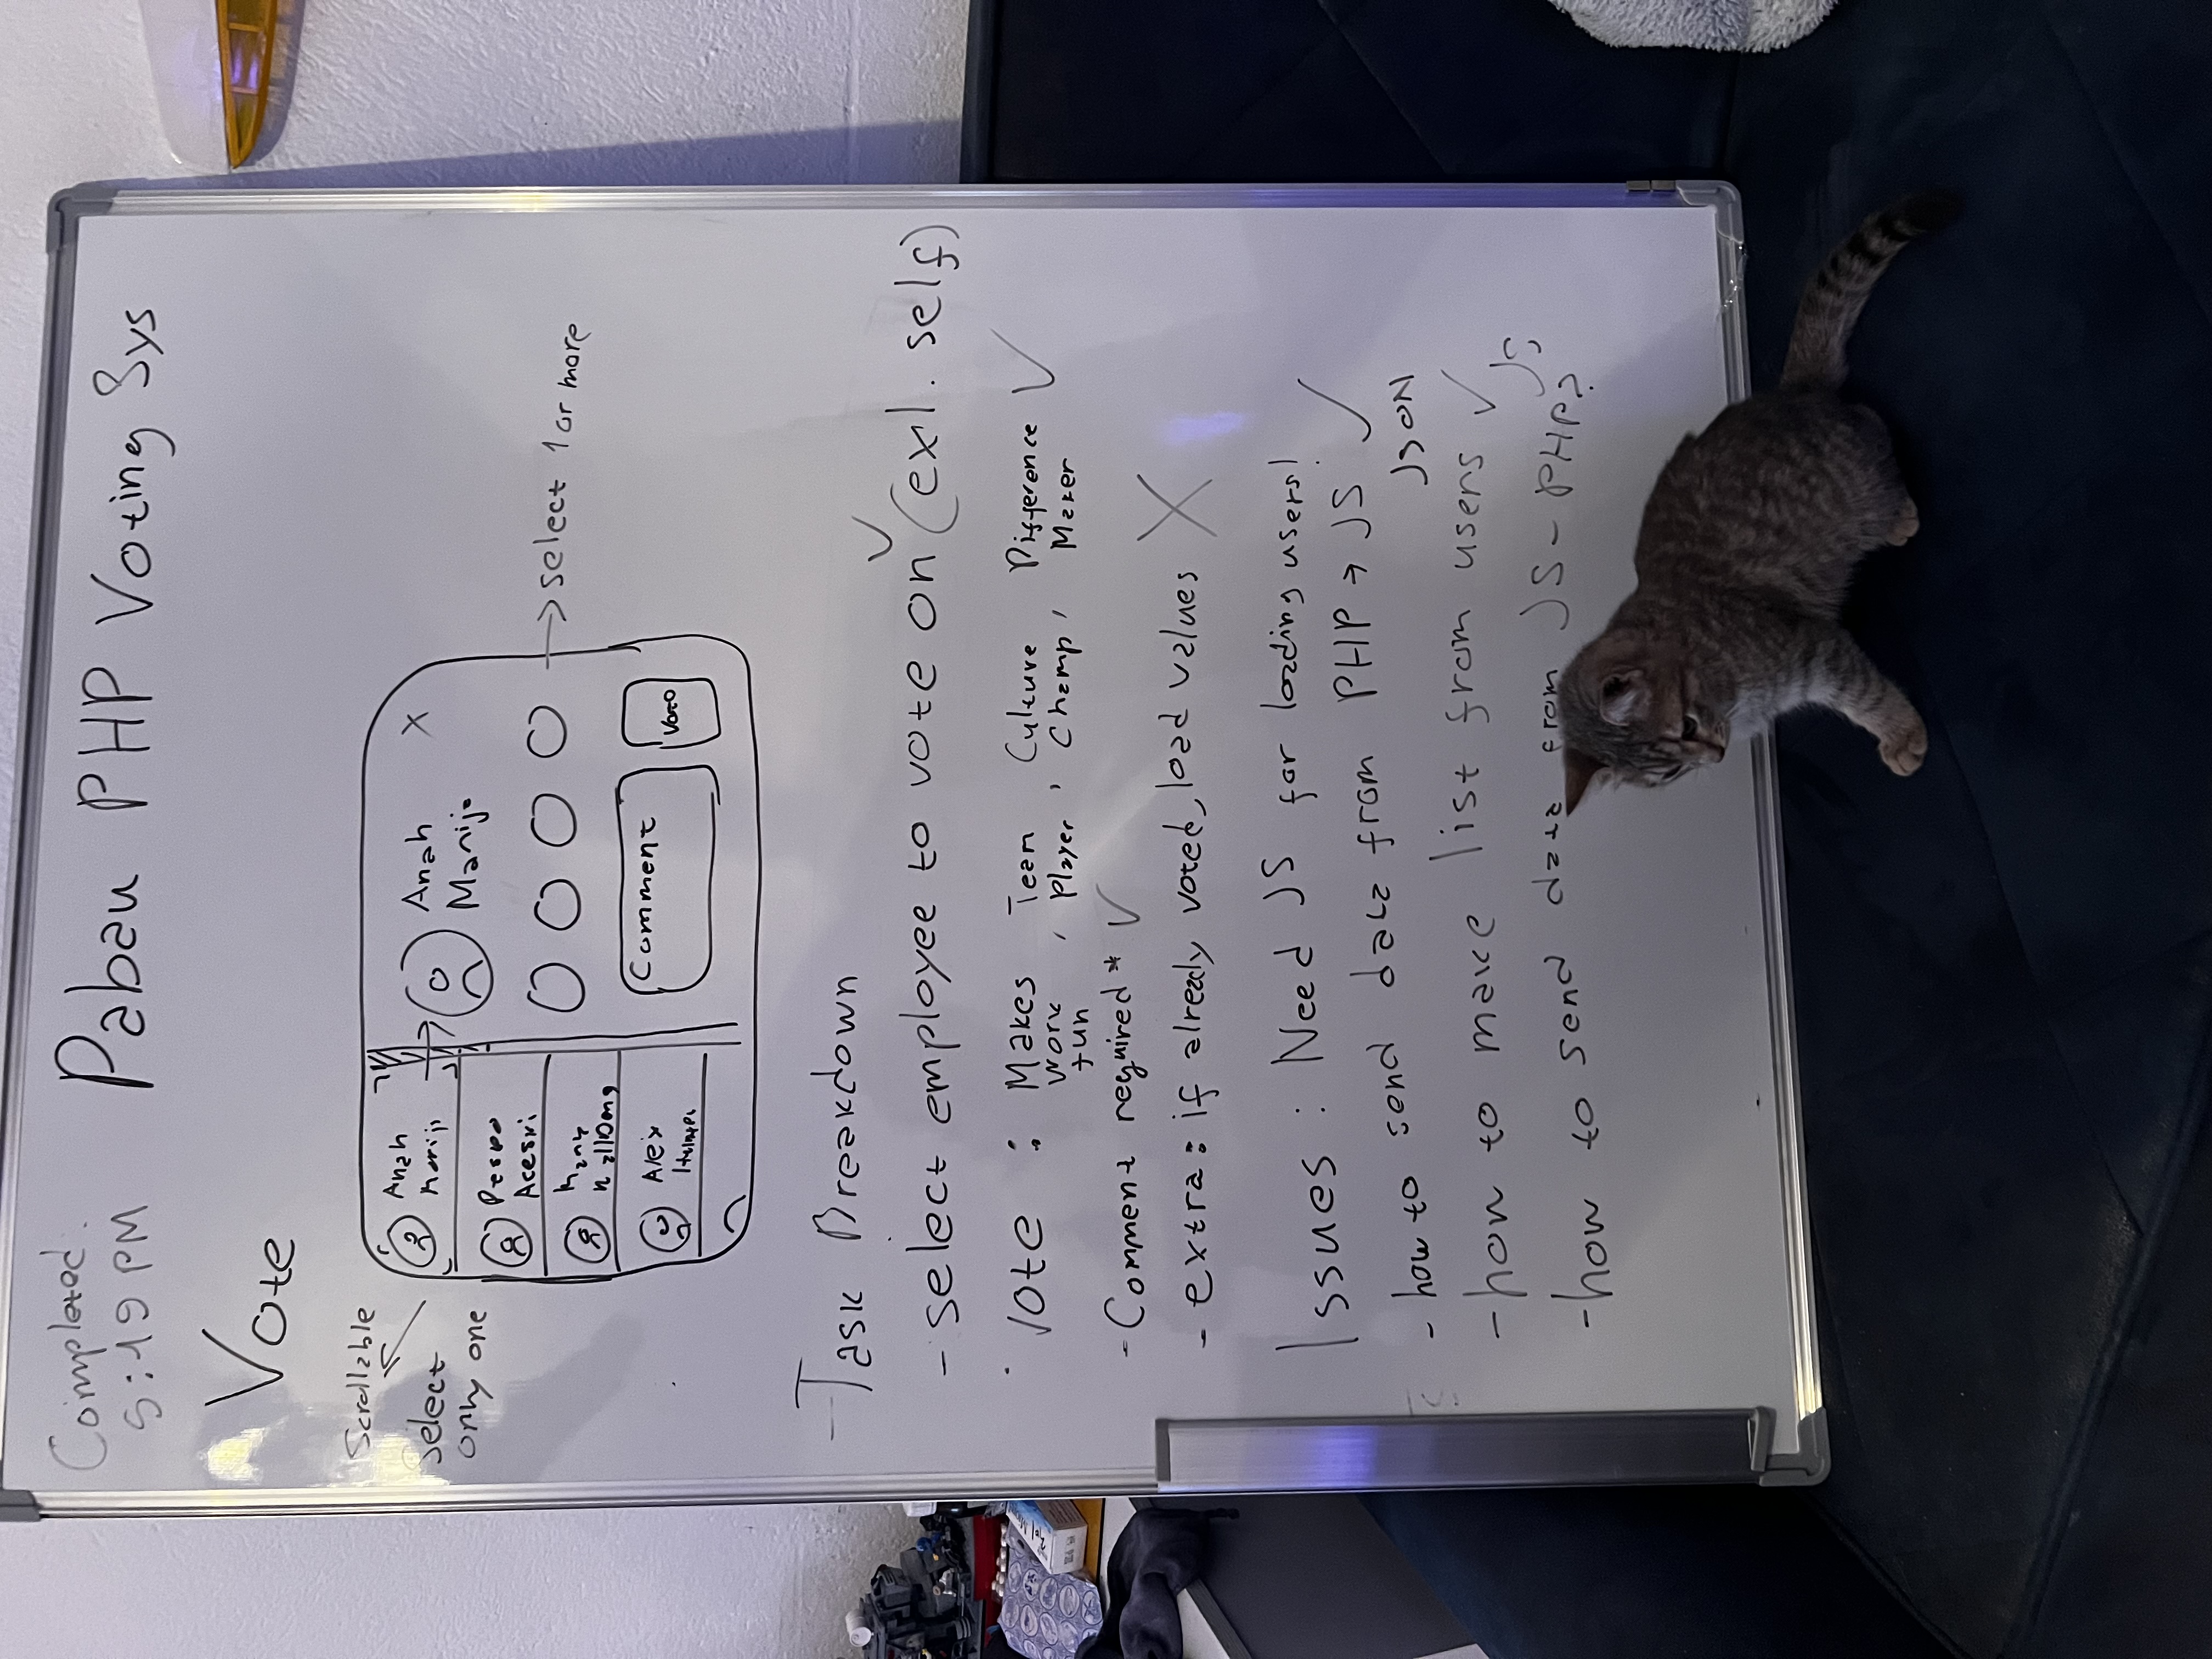 Completed:
5:19 PM
Pabau PHP Voting Sys
Vote
Scrollable
Select
only one
Anah
Marijo
Pespo
Aceski
Alex
Anah
Marijo
X
select 1 or more
Comment
Vote
- Task Breakdown
- select employee to vote on ✓ (exl. self)
Vote : Makes work fun, Team Player, Culture Champ, Difference Maker ✓
- Comment required* ✓
- extra: if already voted, load values X
Issues : Need JS for loading users!
- how to send data from PHP → JS ✓
JSON
- how to make list from users ✓
JS
- how to send data from JS - PHP?